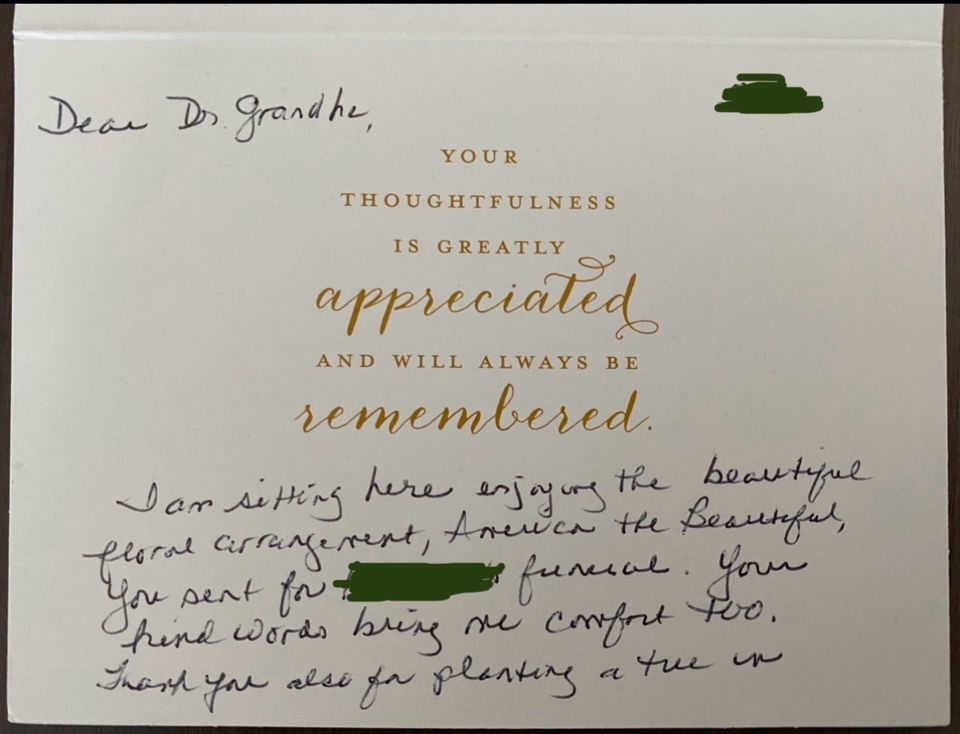 Dear Dr. Grandhe,
YOUR
THOUGHTFULNESS
IS GREATLY
appreciated
AND WILL ALWAYS BE
remembered.
I am sitting here enjoying the beautiful
floral arrangement, America the Beautiful,
You sent for funeral. Your
kind words bring me comfort too.
Thank you also for planting a tree in